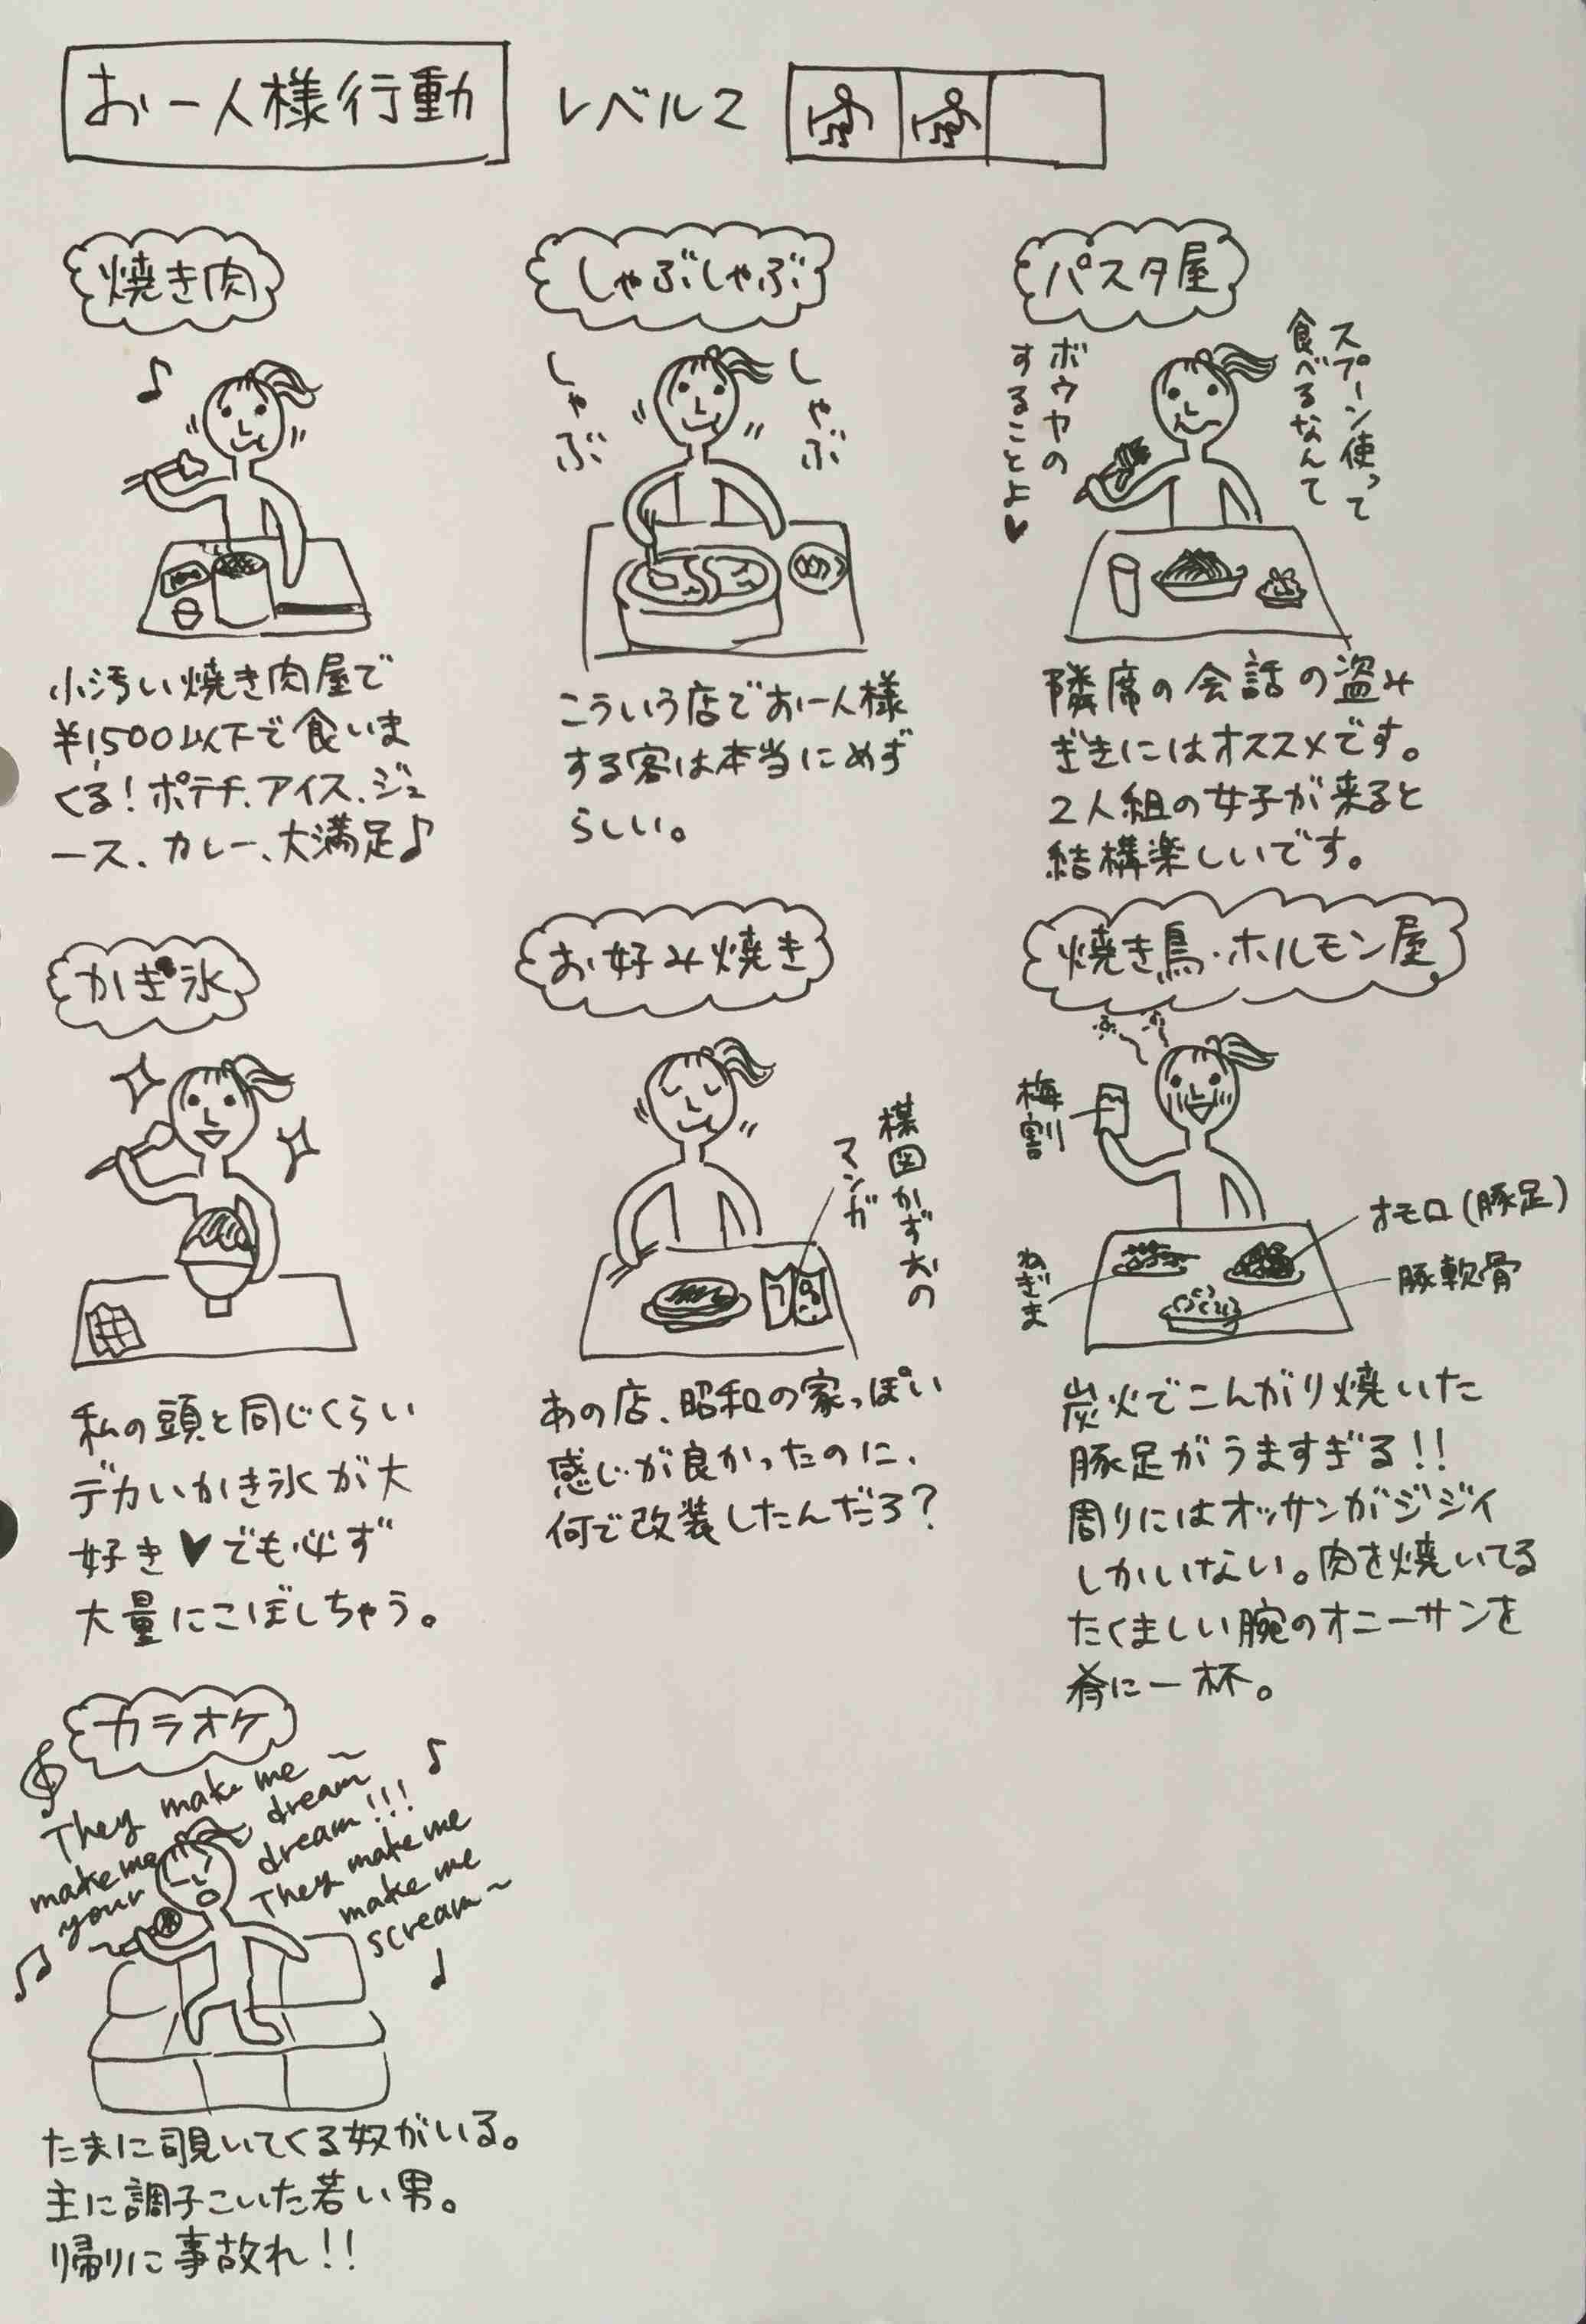 お一人様行動
レベル2
焼き肉
小汚い焼き肉屋で
¥1,500以下で食いま
くる!ポテチ、アイス、ジュ
ース、カレー、大満足♪
しゃぶしゃぶ
しゃぶ
しゃぶ
こういう店でお一人様
する客は本当にめず
らしい。
パスタ屋
スプーン使って
食べるなんて
ボウヤの
することよ♥
隣席の会話の盗み
ぎきにはオススメです。
2人組の女子が来ると
結構楽しいです。
かき氷
私の頭と同じくらい
デカいかき氷が大
好き♥でも必ず
大量にこぼしちゃう。
お好み焼き
楳図かずおの
マンガ
あの店、昭和の家っぽい
感じが良かったのに、
何で改装したんだろ?
焼き鳥・ホルモン屋
梅割
ねぎま
オモロ(豚足)
豚軟骨
炭火でこんがり焼いた
豚足がうますぎる!!
周りにはオッサンがジジイ
しかいない。肉を焼いてる
たくましい腕のオニーサンを
肴に一杯。
カラオケ
They make me ~
make me dream
your dream!!!
They make me
make me
scream~
たまに覗いてくる奴がいる。
主に調子こいた若い男。
帰りに事故れ!!